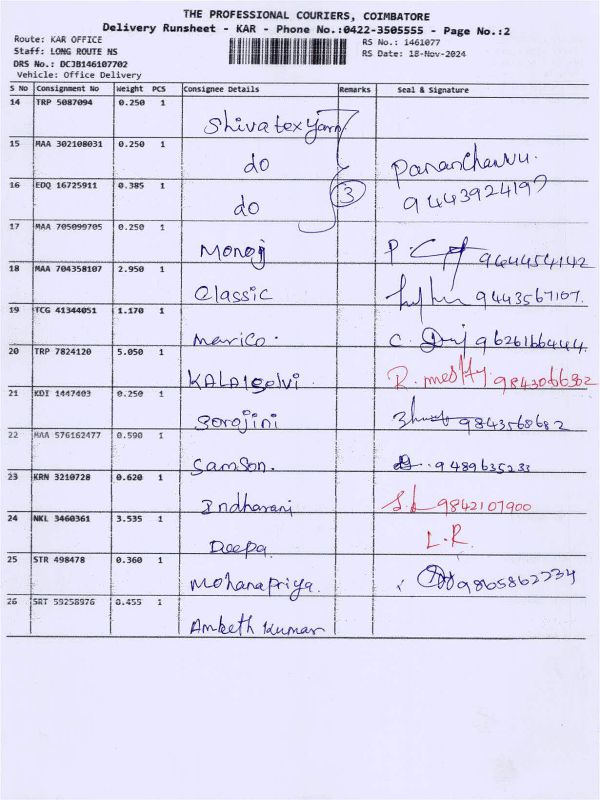 THE PROFESSIONAL COURIERS, COIMBATORE
Delivery Runsheet - KAR - Phone No.:0422-3505555 - Page No.:2
Route: KAR OFFICE
RS No.: 1461077
Staff: LONG ROUTE NS
RS Date: 18-Nov-2024
DRS No.: DCJB146107702
Vehicle: Office Delivery
S No Consignment No Weight PCS Consignee Details Remarks Seal & Signature
14 TRP 5087094 0.250 1
Shivatex yarn
15 MAA 302108031 0.250 1
do
16 EDQ 16725911 0.385 1
do 3 9443924197
17 MAA 705099705 0.250 1
Monoj 9644454142
18 MAA 704358107 2.950 1
Classic 9443567107.
19 TCG 41344051 1.170 1
Marico. C. 9626166444
20 TRP 7824120 5.050 1
KALAIselvi. R. 9843066302
21 KDI 1447403 0.250 1
Sorojini 9843568682
22 MAA 576162477 0.590 1
Samson. 9489635233
23 KRN 3210728 0.620 1
Indharani 9842107900
24 NKL 3460361 3.535 1
Deepa. L.R.
25 STR 498478 0.360 1
MohanaPriya. 9865862234
26 SRT 59258976 0.455 1
Anketh kumar